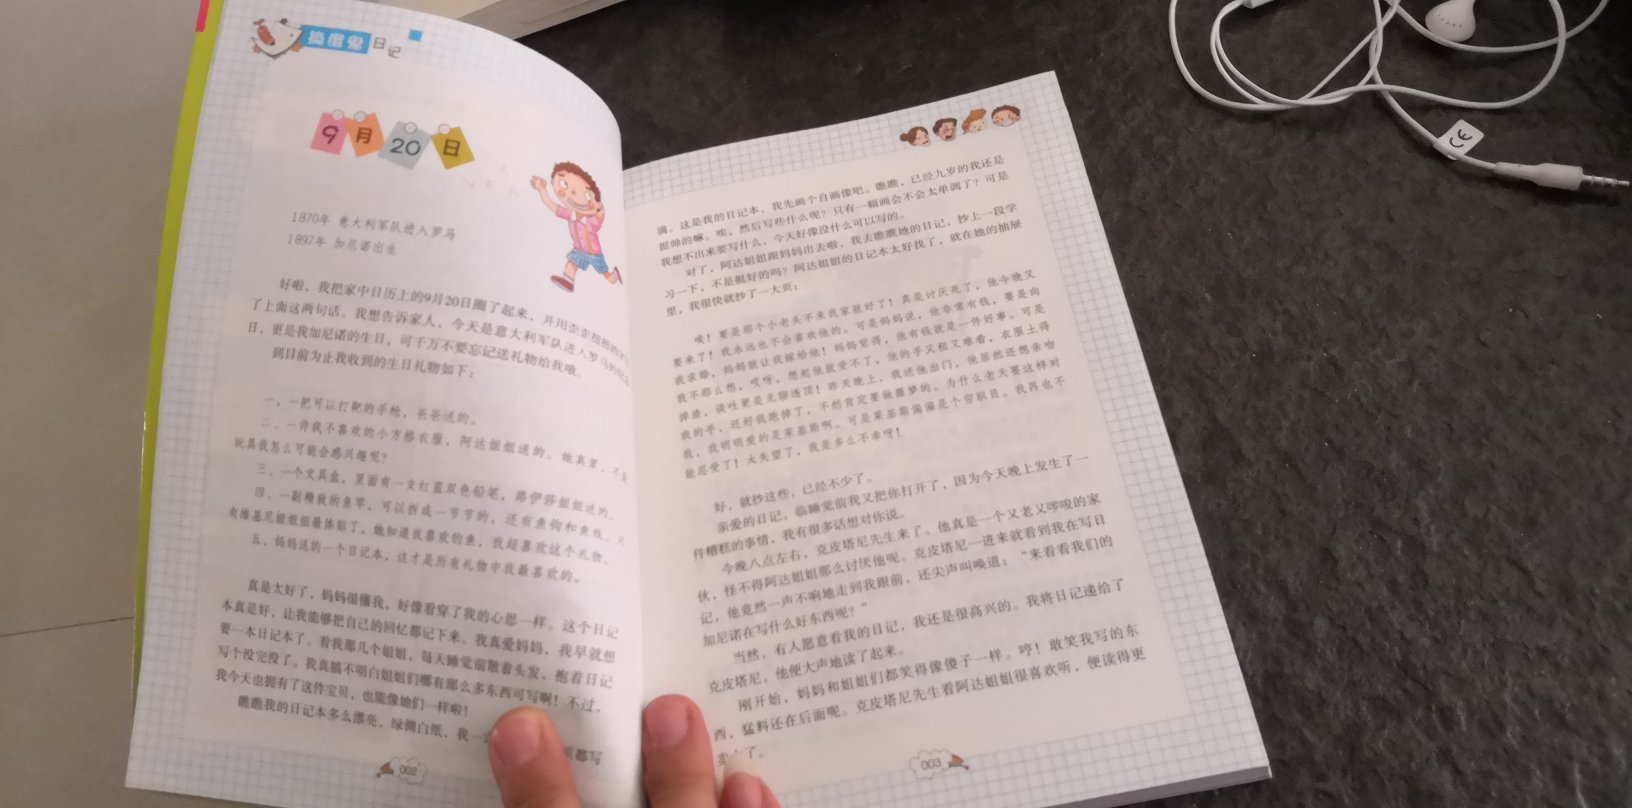 捣蛋鬼日记
9月20日
1870年 意大利军队进入罗马
1897年 加尼诺出生
好啦，我把家中日历上的9月20日圈了起来，并用歪歪扭扭的字
了上面这两句话。我想告诉家人，今天是意大利军队进入罗马的
日，更是我加尼诺的生日，可千万不要忘记送礼物给我哦。
到目前为止我收到的生日礼物如下：
一、一把可以打靶的手枪，爸爸送的。
二、一件我不喜欢的小方格衣服，阿达姐姐送的。她真笨，不是
玩具我怎么可能会感兴趣呢？
三、一个文具盒，里面有一支红蓝双色铅笔，路伊莎姐姐送的。
四、一副精致的鱼竿，可以拆成一节节的，还有鱼钩和鱼线。只
有维基尼娅姐姐最体贴了，她知道我喜欢钓鱼，我超喜欢这个礼物。
五、妈妈送的一个日记本，这才是所有礼物中我最喜欢的。
真是太好了，妈妈很懂我，好像看穿了我的心思一样。这个日记
本真是好，让我能够把自己的回忆都记下来。我真爱妈妈，我早就想
要一本日记本了，看我那几个姐姐，每天睡觉前散着头发，抱着日记
写个没完没了。我真搞不明白姐姐们哪有那么多东西可写啊！不过，
我今天也拥有了这件宝贝，也能像她们一样啦！
瞧瞧我的日记本多么漂亮，绿绸白纸，我一 都写
002
满。这是我的日记本，我先画个自画像吧。瞧瞧，已经九岁的我还是
挺帅的嘛。唉，然后写些什么呢？只有一幅画会不会太单调了？可是
我想不出来要写什么，今天好像没什么可以写的。
对了，阿达姐姐跟妈妈出去啦，我去瞧瞧她的日记，抄上一段学
习一下，不是挺好的吗？阿达姐姐的日记本太好找了，就在她的抽屉
里，我很快就抄了一大页：
唉！要是那个小老头不来我家就好了！真是讨厌死了，他今晚又
要来了！我永远也不会喜欢他的。可是妈妈说，他非常有钱，要是向
我求婚，妈妈就让我嫁给他！妈妈觉得，他有钱就是一件好事。可是
我不那么想，哎呀，想起他就受不了，他的手又粗又难看，衣服土得
掉渣，谈吐更是无聊透顶！昨天晚上，我送他出门，他居然还想亲吻
我的手，还好我跑掉了，不然肯定要做噩梦的。为什么老天要这样对
我，我明明爱的是莱基斯啊。可是莱基斯偏偏是个穷职员。我再也不
能忍受了！太失望了，我是多么不幸呀！
好，就抄这些，已经不少了。
亲爱的日记，临睡觉前我又把你打开了，因为今天晚上发生了一
件糟糕的事情，我有很多话想对你说。
今晚八点左右，克皮塔尼先生来了。他真是一个又老又啰唆的家
伙，怪不得阿达姐姐那么讨厌他呢。克皮塔尼一进来就看到我在写日
记，他竟然一声不响地走到我跟前，还尖声叫唤道：“来看看我们的
加尼诺在写什么好东西呢？”
当然，有人愿意看我的日记，我还是很高兴的。我将日记递给了
克皮塔尼，他便大声地读了起来。
刚开始，妈妈和姐姐们都笑得像傻子一样。哼！敢笑我写的东
西，猛料还在后面呢。克皮塔尼先生看阿达姐姐很喜欢听，便读得更
了。
003
CE